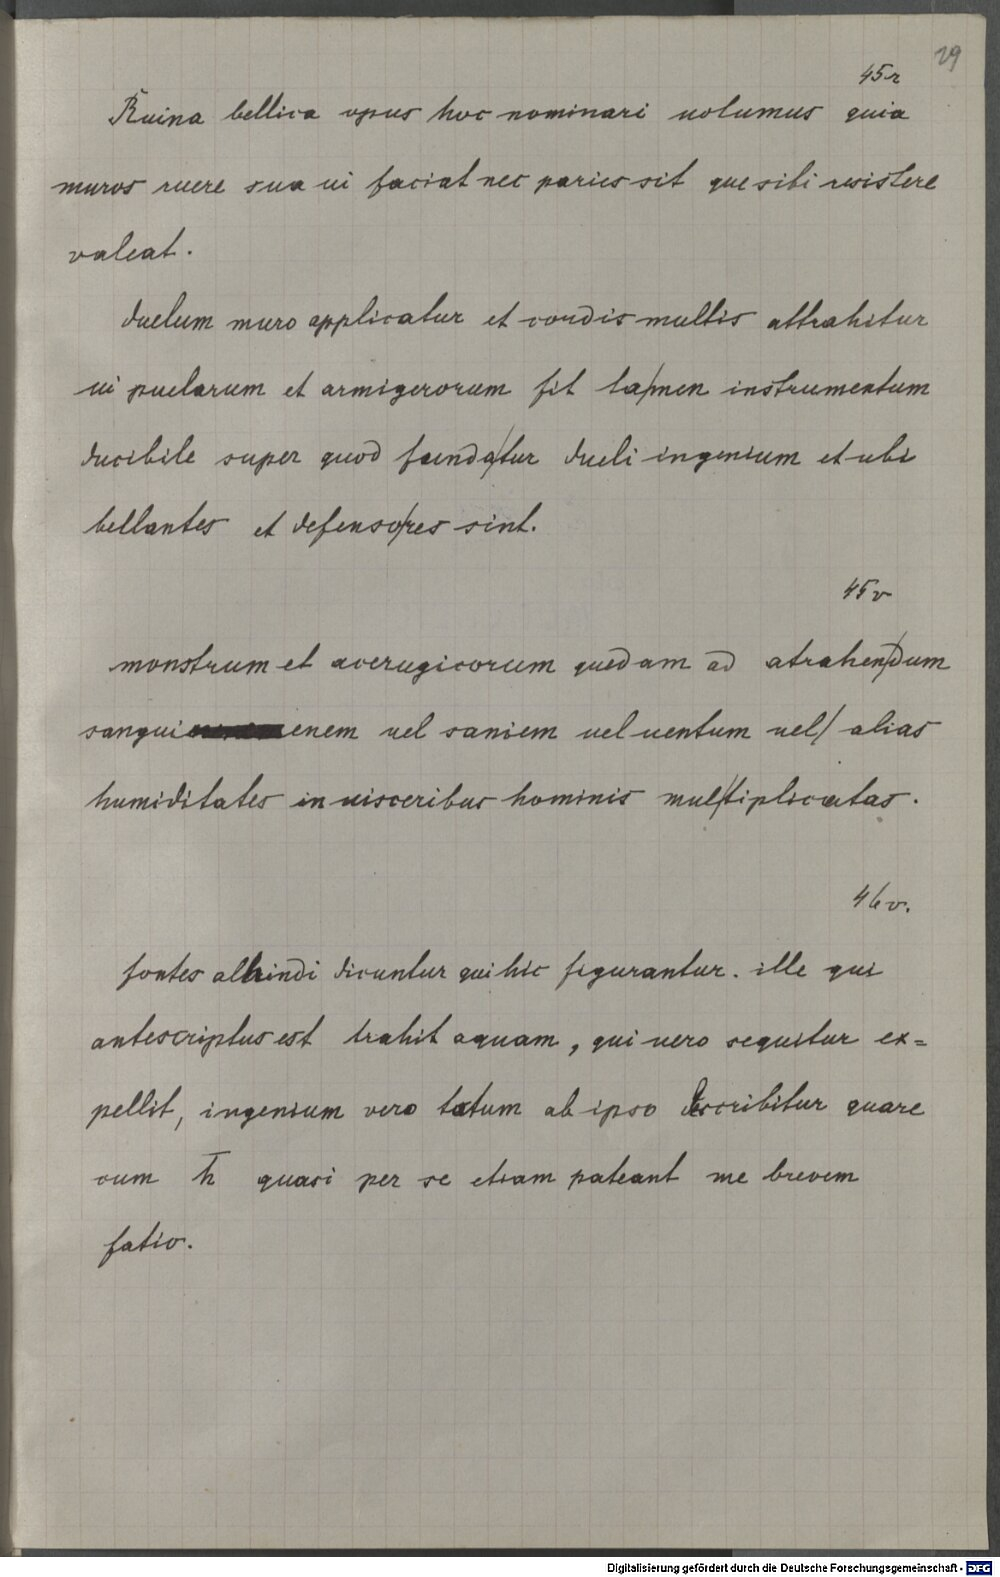 29
45r
Ruina bellica opus hoc nominari uolumus quia
muros ruere sua ui faciat nec paries sit que sibi resistere
valeat.
duelum muro applicatur et cordis multis attrahitur
ui puelarum et armigerorum fit ta/men instrumentum
ducibile super quod funda/tur dueli ingenium et ubi
bellantes et defenso/res sint.
45v
monstrum et acerugicorum quedam ad atrahen/dum
sangui enem uel saniem uel uentum uel/ alias
humiditates in uisceribus hominis mul/tiplicatas.
46v.
fontes alhindi dicuntur qui hic figurantur. ille qui
antescriptus est trahit aquam, qui uero sequitur ex=
pellit, ingenium vero totum ab ipso describitur quare
cum h̄ quasi per se etiam pateant me brevem
fatio.
Digitalisierung gefördert durch die Deutsche Forschungsgemeinschaft - DFG